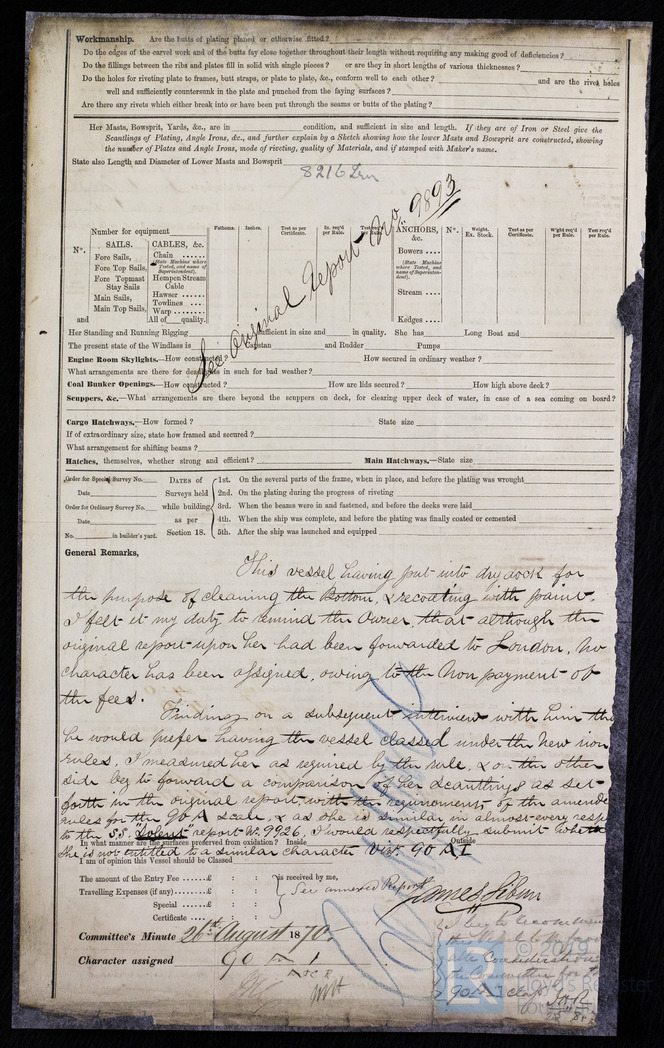 Workmanship. Are the butts of plating planed or otherwise fitted?
Do the edges of the carvel work and of the butts fay close together throughout their length without requiring any making good of deficiencies?
Do the fillings between the ribs and plates fill in solid with single pieces? or are they in short lengths of various thicknesses?
Do the holes for riveting plate to frames, butt straps, or plate to plate, &c., conform well to each other? and are the rivet holes
well and sufficiently countersunk in the plate and punched from the faying surfaces?
Are there any rivets which either break into or have been put through the seams or butts of the plating?
Her Masts, Bowsprit, Yards, &c., are in condition, and sufficient in size and length. If they are of Iron or Steel give the
Scantlings of Plating, Angle Irons, &c., and further explain by a Sketch showing how the lower Masts and Bowsprit are constructed, showing
the number of Plates and Angle Irons, mode of riveting, quality of Materials, and if stamped with Maker's name.
State also Length and Diameter of Lower Masts and Bowsprit
8216 Irn
See Original Report No. 9893
Number for equipment
Fathoms. Inches. Test as per Certificate. In. req'd per Rule. Test req'd per Rule. ANCHORS, &c. N°. Weight. Ex. Stock. Test as per Certificate. W'ght req'd per Rule. Test req'd per Rule.
N°. SAILS. CABLES, &c.
Fore Sails, Chain
(State Machine where Tested, and name of Superintendent).
Fore Top Sails,
Fore Topmast Stay Sails
Hempen Stream Cable
Main Sails, Hawser
Towlines
Main Top Sails, Warp
and All of quality.
Bowers
(State Machine where Tested, and name of Superintendent).
Stream
Kedges
Her Standing and Running Rigging sufficient in size and in quality. She has Long Boat and
The present state of the Windlass is Capstan and Rudder Pumps
Engine Room Skylights.—How constructed? How secured in ordinary weather?
What arrangements are there for deadlights in such for bad weather?
Coal Bunker Openings.—How constructed? How are lids secured? How high above deck?
Scuppers, &c.—What arrangements are there beyond the scuppers on deck, for clearing upper deck of water, in case of a sea coming on board?
Cargo Hatchways.—How formed? State size
If of extraordinary size, state how framed and secured?
What arrangement for shifting beams?
Hatches, themselves, whether strong and efficient? Main Hatchways.—State size
Order for Special Survey No.
Date
Order for Ordinary Survey No.
Date
No. in builder's yard.
DATES of Surveys held while building as per Section 18.
1st. On the several parts of the frame, when in place, and before the plating was wrought
2nd. On the plating during the progress of riveting
3rd. When the beams were in and fastened, and before the decks were laid
4th. When the ship was complete, and before the plating was finally coated or cemented
5th. After the ship was launched and equipped
General Remarks,
This vessel having put into dry dock for
the purpose of cleaning the Bottom, & recoating with paint.
I felt it my duty to remind the Owner, that although the
original report upon her had been forwarded to London, no
character has been assigned, owing to the Non payment of
the fees.
Finding on a subsequent interview with him that
he would prefer having the vessel classed under the New iron
rules, I measured her as required by the rule, & on the other
side beg to forward a comparison of her scantlings as set
forth in the original report, with the requirements of the amended
rules for the 90 A scale, & as she is similar in almost every respect
to the S.S. "Solent" report No. 9926, I would respectfully submit whether
she is not entitled to a similar character viz. 90 A 1
In what manner are the surfaces preserved from oxidation? Inside Outside
I am of opinion this Vessel should be Classed
The amount of the Entry Fee £ : : is received by me,
Travelling Expenses (if any) £ : :
Special £ : :
Certificate : :
See annexed Report
Committee's Minute 26th August 1870.
Character assigned 90 A 1
© 2019
Lloyd's Register Foundation